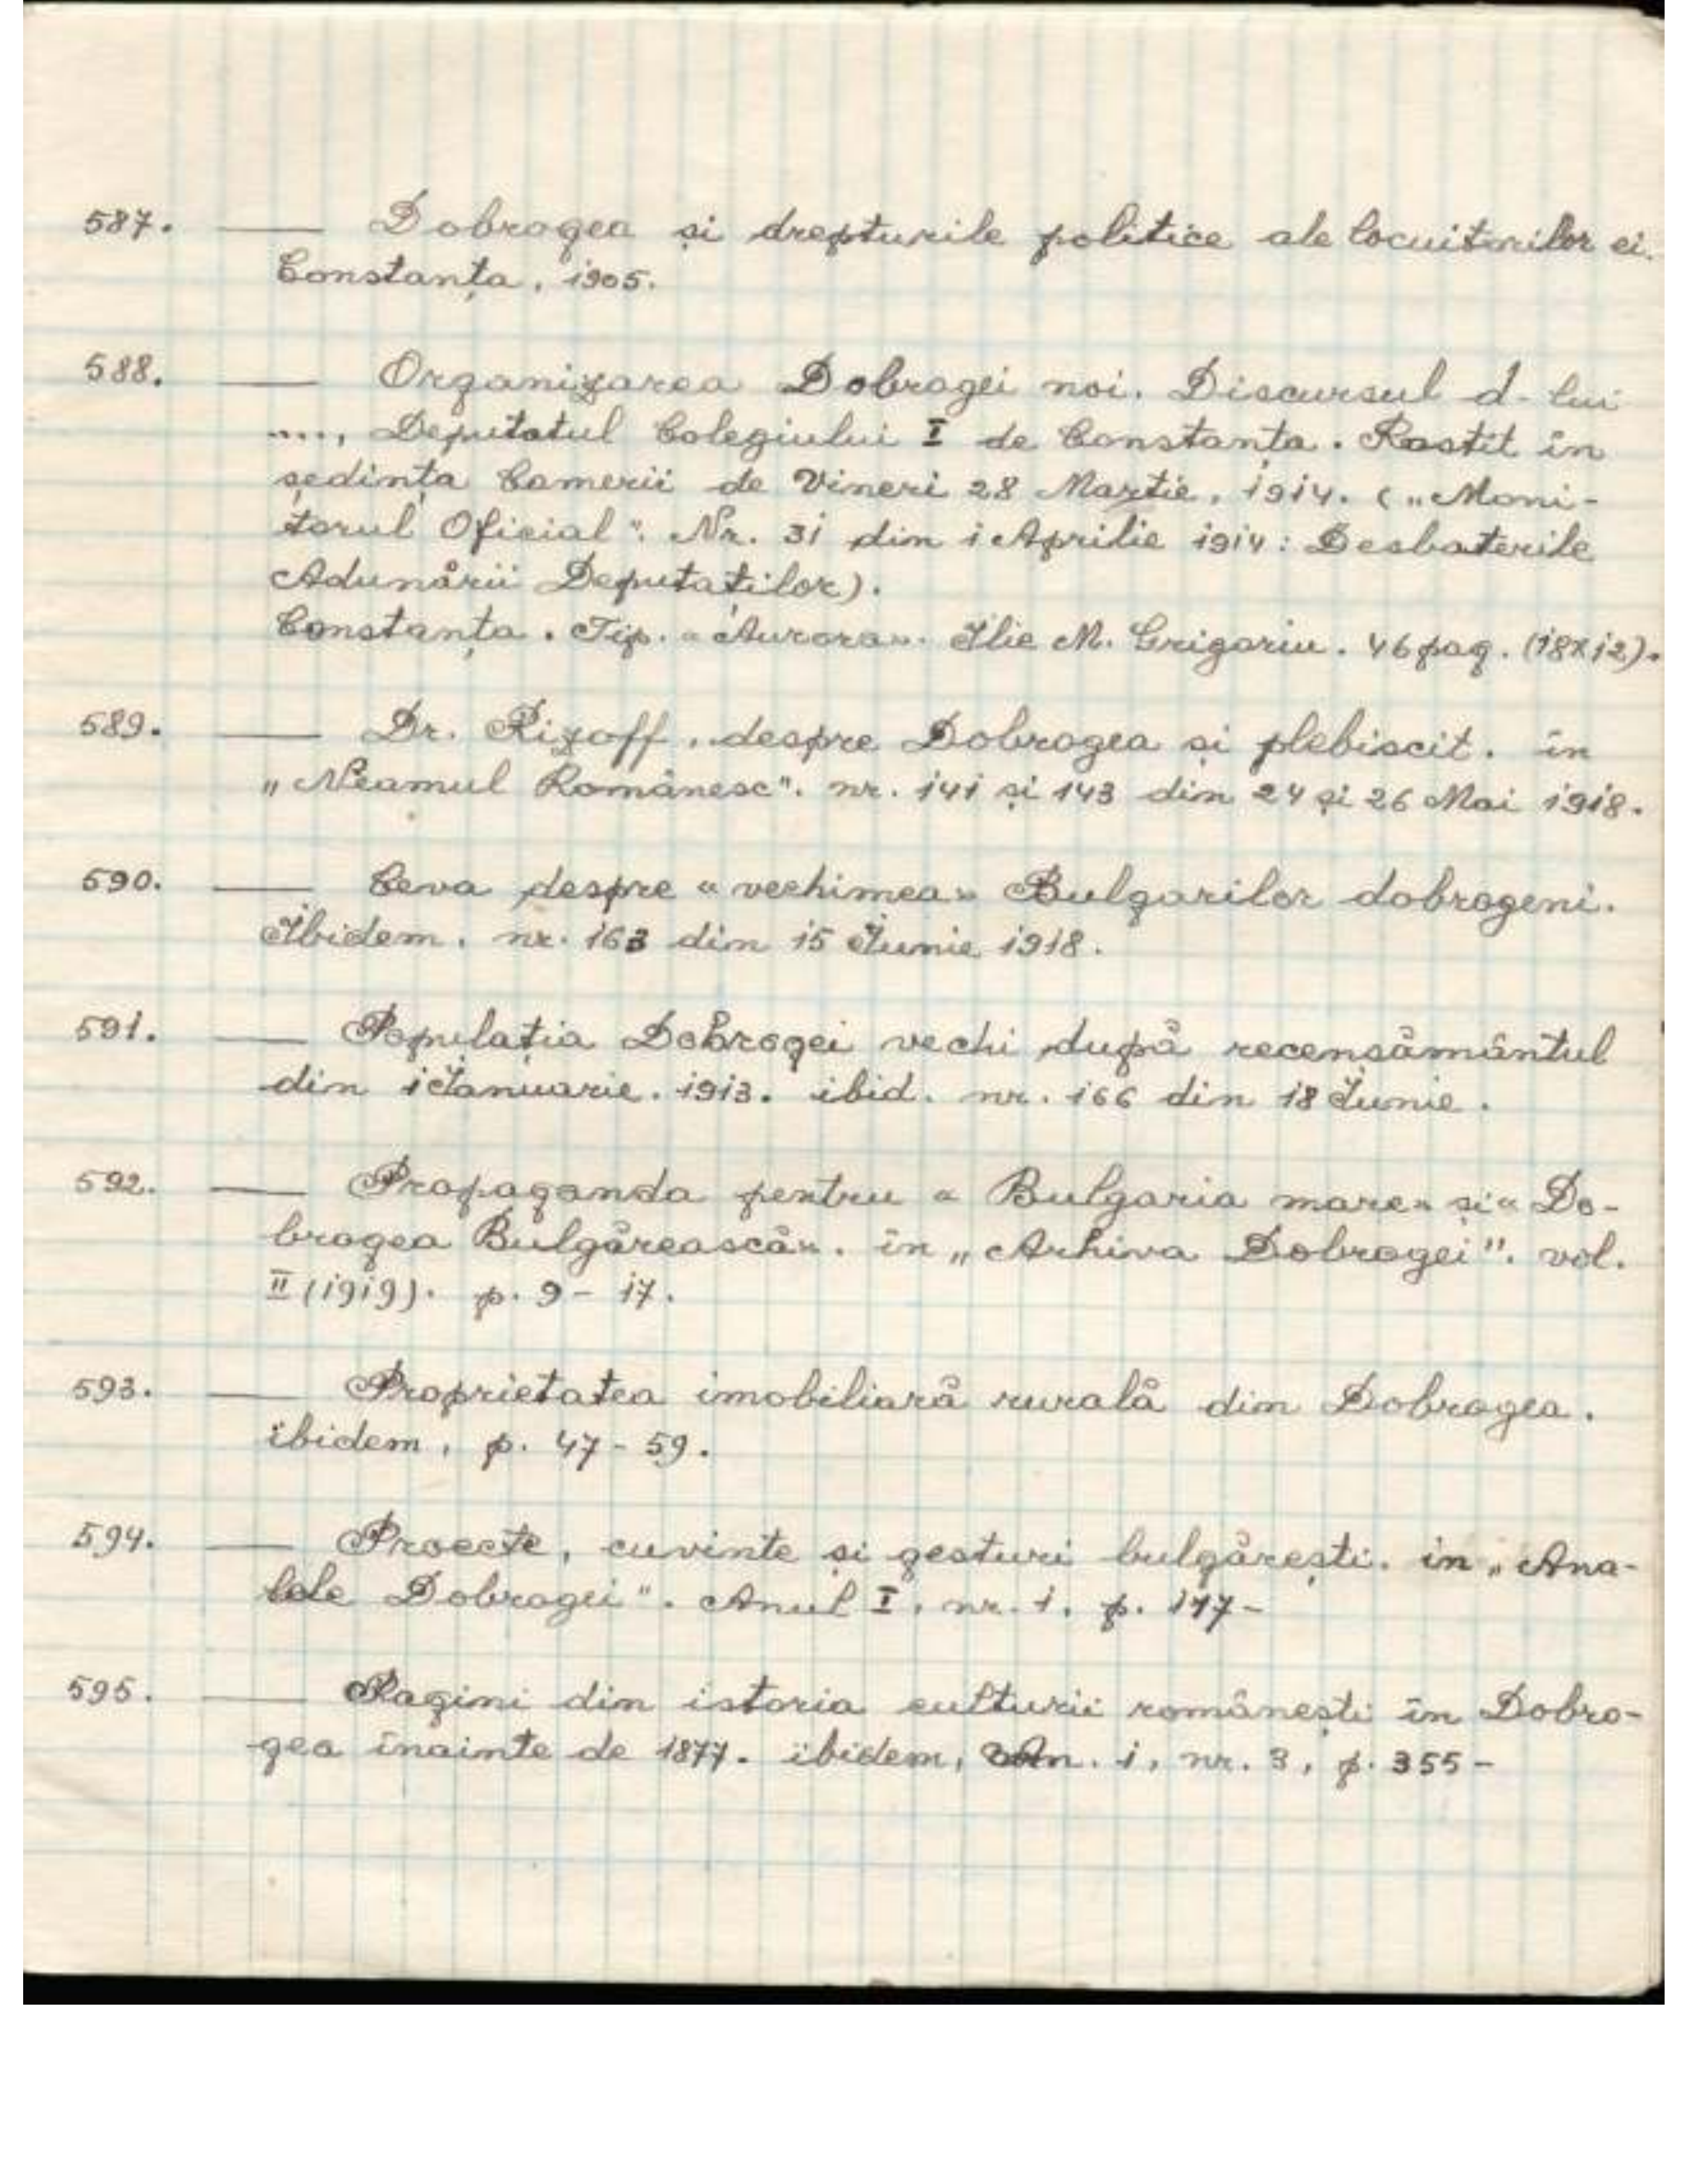 587. — Dobrogea și drepturile politice ale locuitorilor ei.
Constanța, 1905.
588. — Organizarea Dobrogei noi. Discursul d-lui
...., Deputatul Colegiului I de Constanța. Rostit în
ședința Camerii de Vineri 28 Martie, 1914. („Moni-
torul Oficial". Nr. 31 din 1 Aprilie 1914: Desbaterile
Adunării Deputaților).
Constanța. Tip. «Aurora». Ilie M. Grigoriu. 46 pag. (18x12).
589. — Dr. Rizoff, despre Dobrogea și plebiscit. în
„Neamul Românesc". nr. 141 și 143 din 24 și 26 Mai 1918.
590. — Ceva despre «vechimea» Bulgarilor dobrogeni.
Ibidem. nr. 163 din 15 Iunie 1918.
591. — Populația Dobrogei vechi după recensământul
din 1 Ianuarie. 1913. ibid. nr. 166 din 18 Iunie.
592. — Propaganda pentru «Bulgaria mare» și «Do-
brogea Bulgărească». în „Arhiva Dobrogei". vol.
II (1919). p. 9 - 17.
593. — Proprietatea imobiliară rurală din Dobrogea.
ibidem, p. 47 - 59.
594. — Proecte, cuvinte și gesturi bulgărești. in „Ana-
lele Dobrogei". Anul I, nr. 1. p. 147 -
595. — Pagini din istoria culturii românești în Dobro-
gea înainte de 1877. ibidem, An. 1, nr. 3, p. 355 -